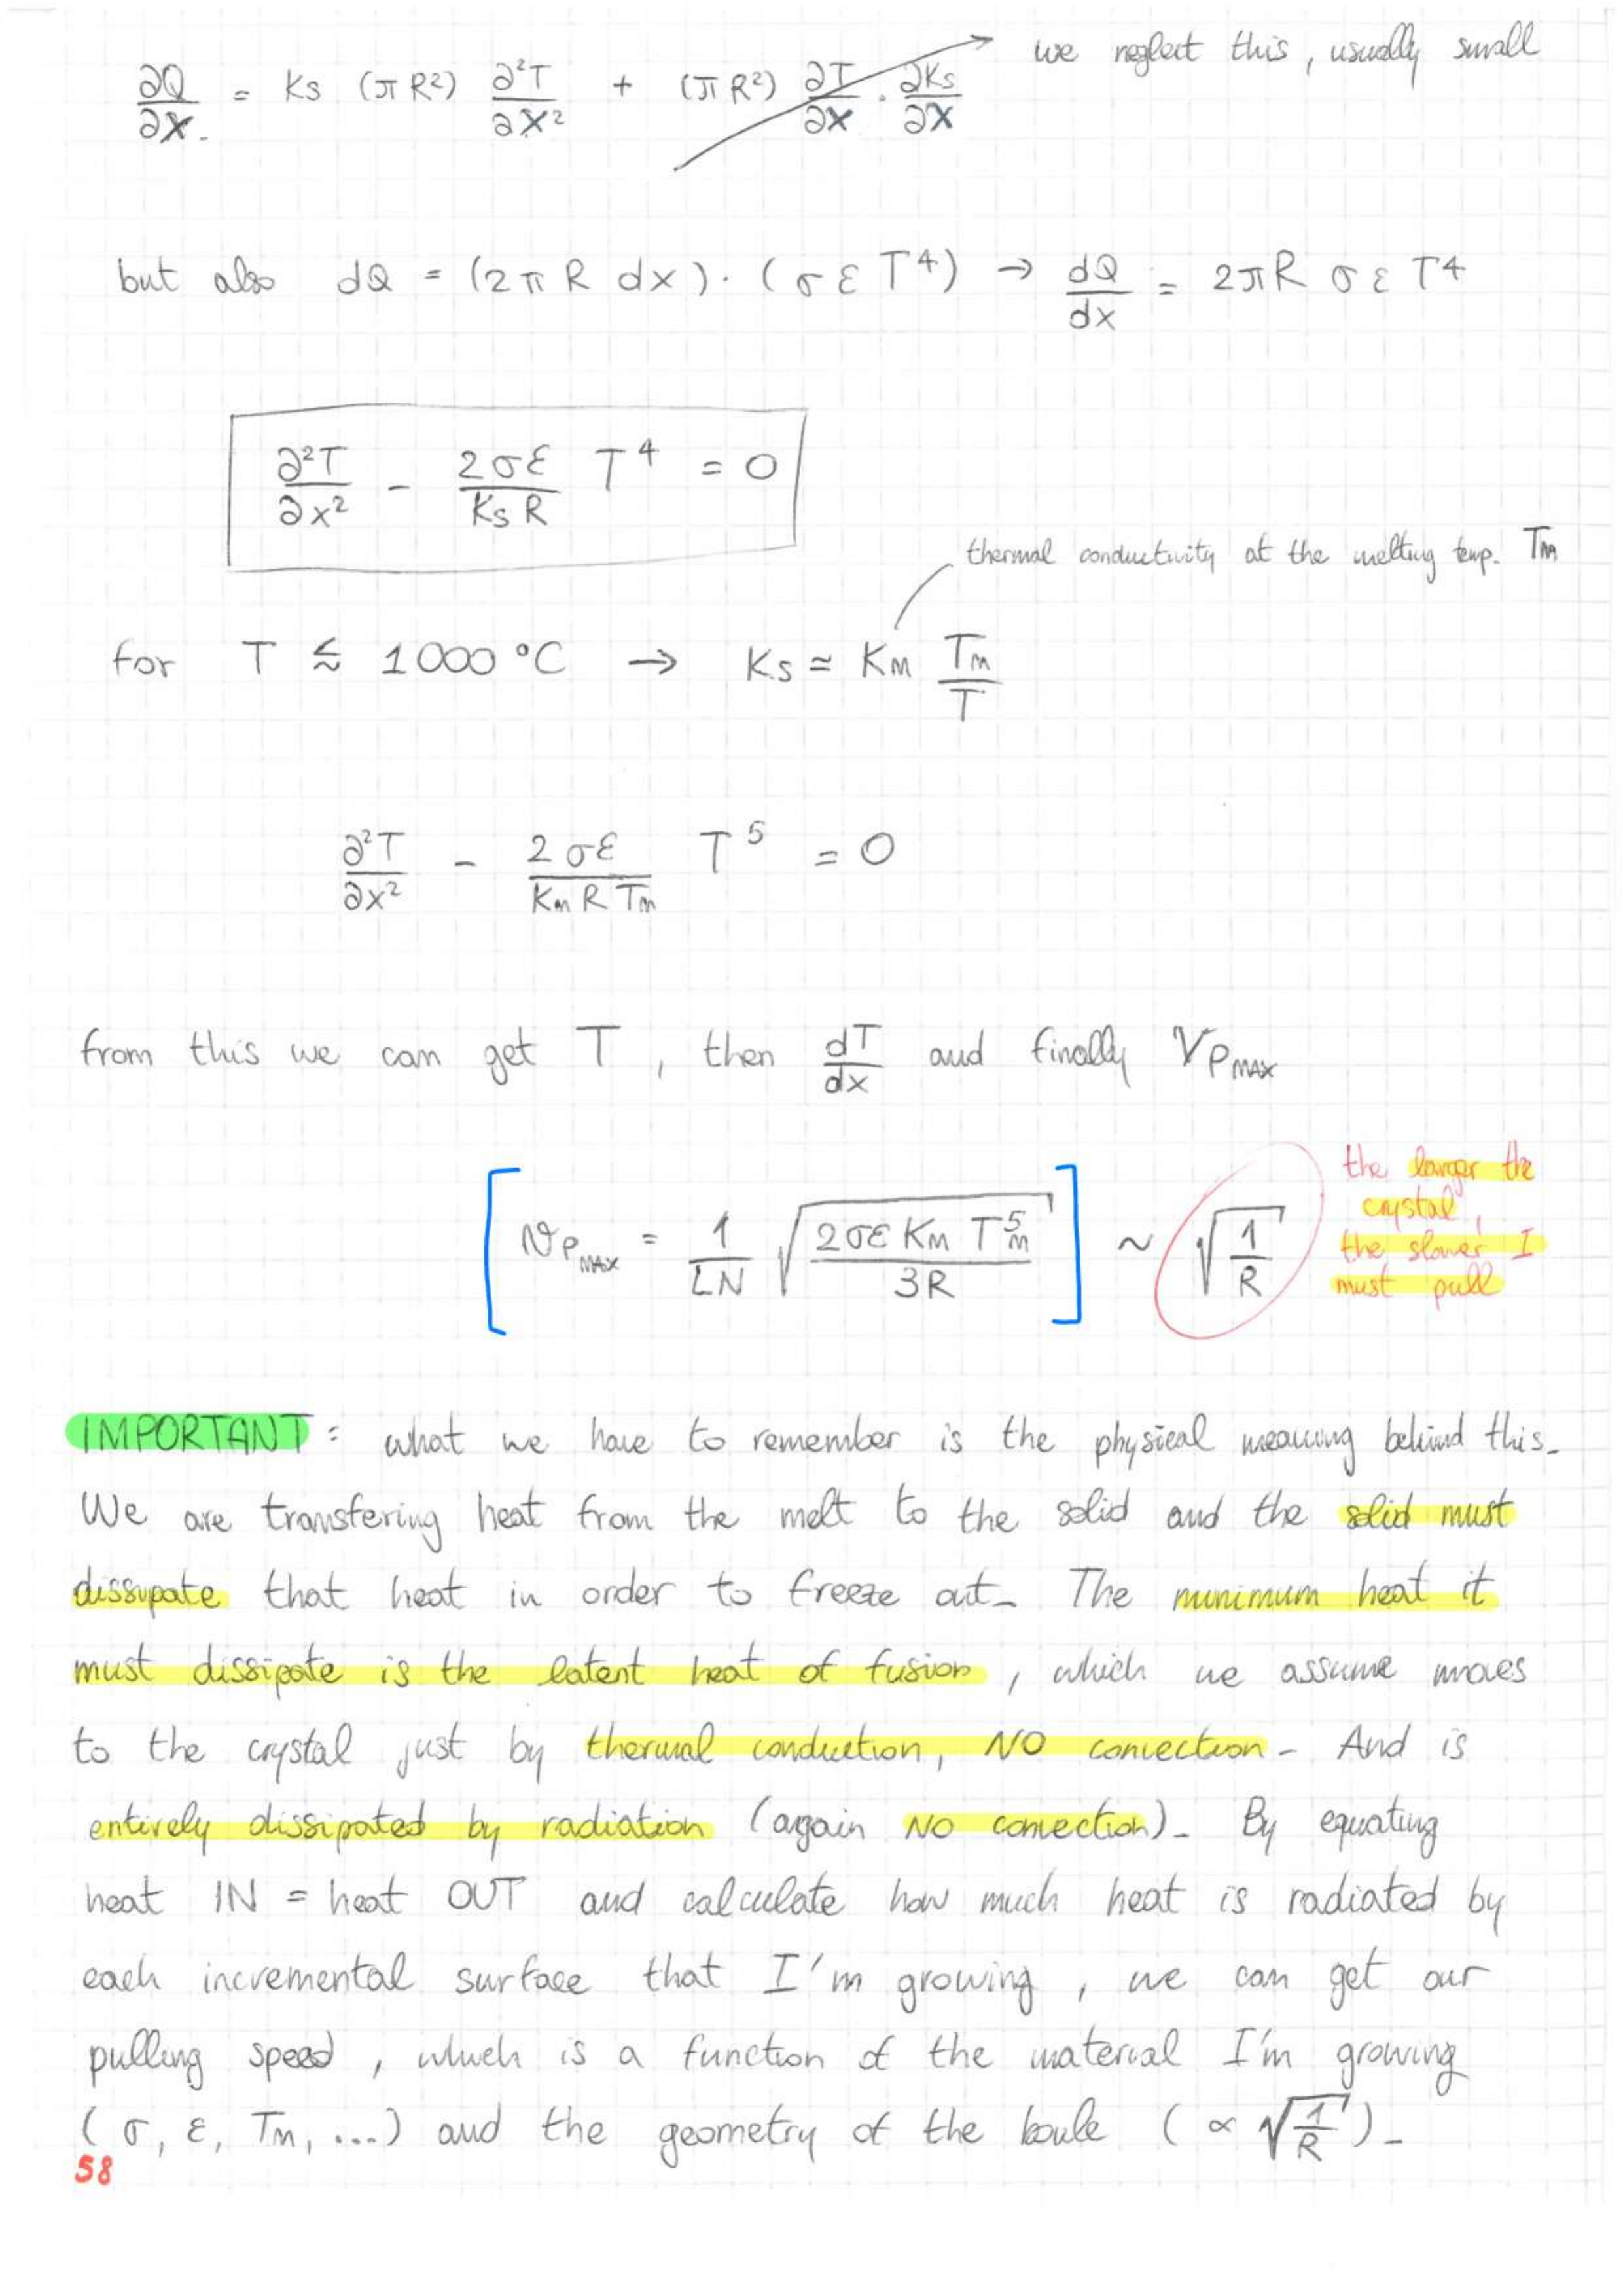 ∂Q/∂x = Ks (πR²) ∂²T/∂x² + (πR²) ∂T/∂x · ∂Ks/∂x → we neglect this, usually small
but also dQ = (2πR dx)·(σεT⁴) → dQ/dx = 2πR σεT⁴
∂²T/∂x² - 2σε/KsR T⁴ = 0
thermal conductivity at the melting temp. Tm
for T ≲ 1000 °C → Ks ≃ KM Tm/T
∂²T/∂x² - 2σε/KmRTm T⁵ = 0
from this we can get T, then dT/dx and finally VPMAX
[VPMAX = 1/LN √(2σεKM Tm⁵/3R)] ~ √(1/R)
the larger the
crystal,
the slower I
must pull
IMPORTANT: what we have to remember is the physical meaning behind this_
We are transfering heat from the melt to the solid and the solid must
dissipate that heat in order to freeze out_ The minimum heat it
must dissipate is the latent heat of fusion, which we assume moves
to the crystal just by thermal conduction, NO convection - And is
entirely dissipated by radiation (again NO convection)_ By equating
heat IN = heat OUT and calculate how much heat is radiated by
each incremental surface that I'm growing, we can get our
pulling speed, which is a function of the material I'm growing
(σ, ε, Tm, ...) and the geometry of the boule (∝ √(1/R))_
58